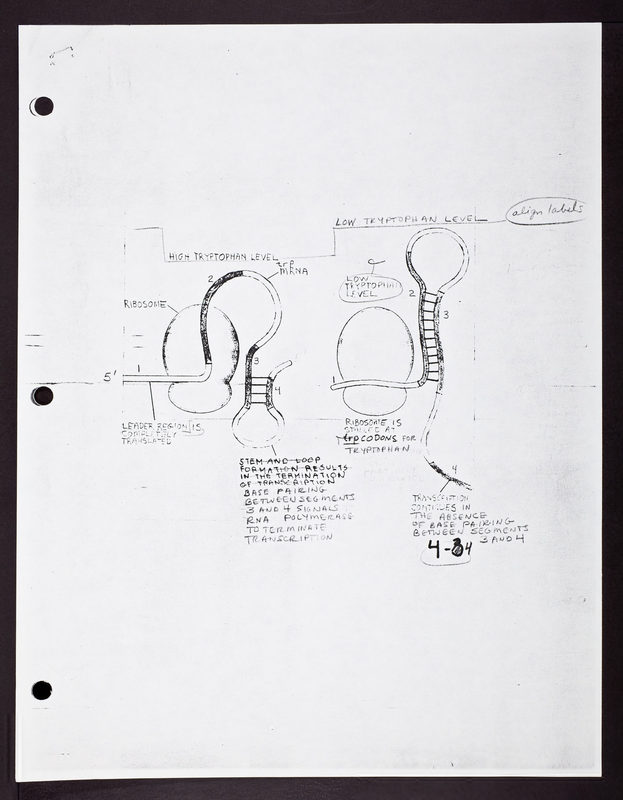 align labels
LOW TRYPTOPHAN LEVEL
HIGH TRYPTOPHAN LEVEL
trp
mRNA
2
RIBOSOME
3
5'
1
4
LEADER REGION IS
COMPLETELY
TRANSLATED
STEM AND LOOP
FORMATION RESULTS
IN THE TERMINATION
OF TRANSCRIPTION
BASE PAIRING
BETWEEN SEGMENTS
3 AND 4 SIGNALS
RNA POLYMERASE
TO TERMINATE
TRANSCRIPTION
LOW
TRYPTOPHAN
LEVEL
2
3
1
RIBOSOME IS
STALLED AT
trp CODONS FOR
TRYPTOPHAN
4
TRANSCRIPTION
CONTINUES IN
THE ABSENCE
OF BASE PAIRING
BETWEEN SEGMENTS
3 AND 4
4-4